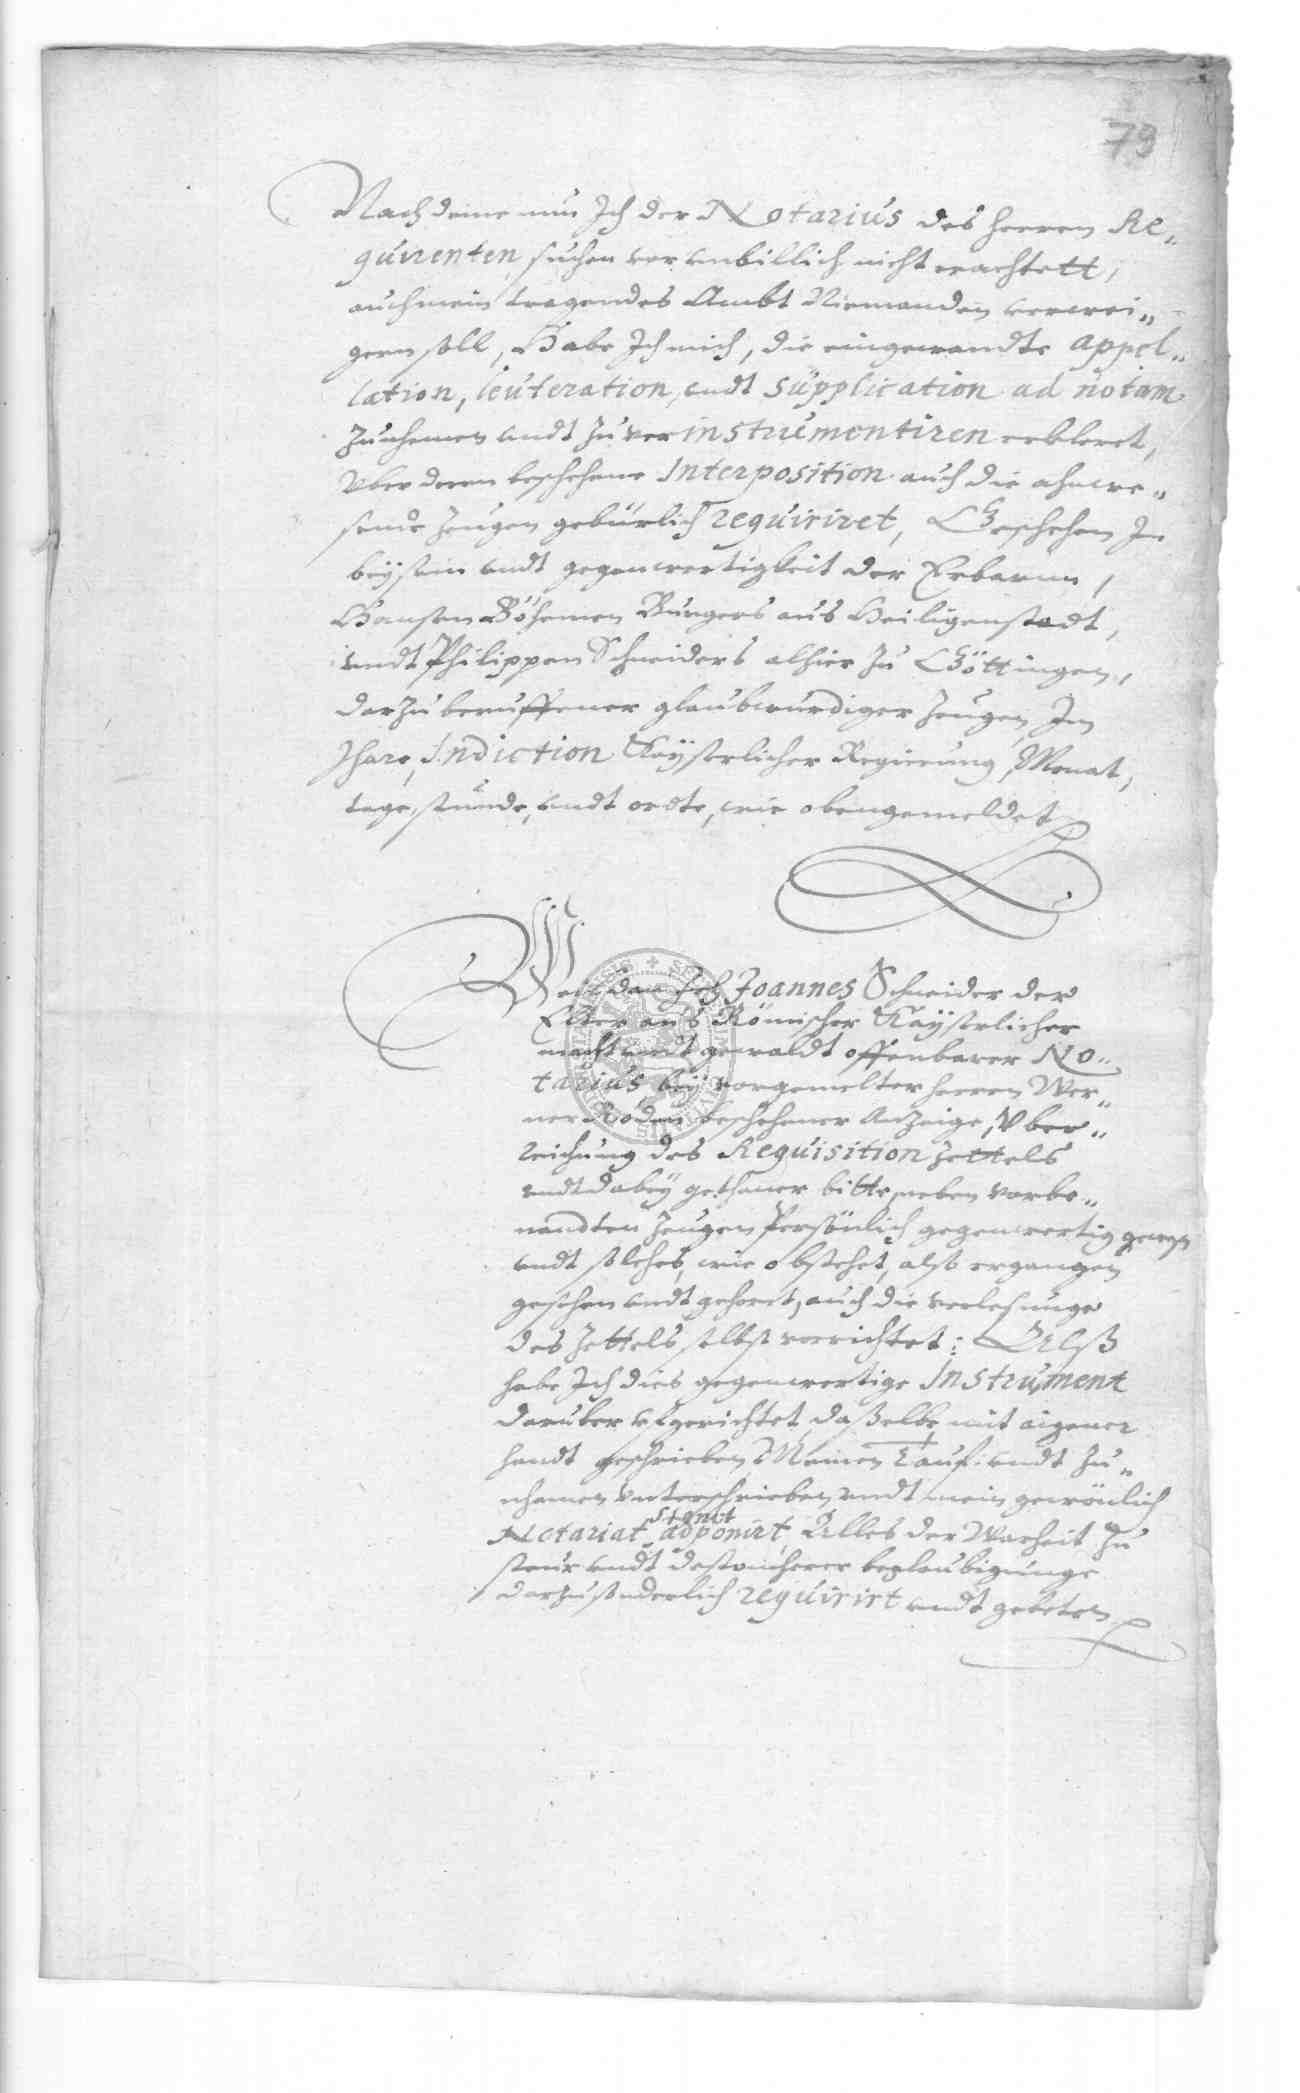 79
Nachdeme nun Ich der Notarius des herren Re„
quirenten suchen vor unbillich nicht erachtett,
auch mein tragendes Ambt Niemanden verwei„
gern soll, Habe Ich mich, die eingewandte Appel„
lation, leuteration, undt supplication ad notam
zunehmen undt zuver instrumentiren erkleret,
Vber deren beschehene Interposition auch die ahnwe„
sende Zeugen gebürlich requiriret, Geschehen In
beÿsein undt gegenwertigkeit der Erbarnn,
Hansen Böhemen Burgers aus Heiligenstadt,
undt Philippen Schneiders alhier zu Göttingen,
darzu beruffener glaubwurdiger Zeugen, Im
Ihare, Indiction Kaÿserlicher Regierung, Monat,
tage, stunde, undt ordte, wie obengemeldet
Weil dan Ich Joannes Schneider der
Elter aus Römischer Kaÿserlicher
macht undt gewaldt offenbarer No„
tarius beÿ vorgemelter herren Wer„
ner Röden beschehener Anzeige, Vber„
reichung des Requisition Zettels
undt dabeÿ gethaner bitte, neben vorbe„
nandten Zeugen Persönlich gegenwertig gewesen
undt solches, wie obstehet, also ergangen
gesehen undt gehoret, auch die verlesunge
des Zettels selbst verrichtet: Alß
habe Ich dies gegenwertige Instrument
daruber ufgerichtet, daßelbe mit aigener
handt geschrieben, Meinen Tauf: undt Zu„
nhamen unterschrieben undt mein gewönlich
Notariat Signet adponirt, Alles der Warheit zu
steur undt destomeherer beglaubigunge
darzu sonderlich requirirt undt gebeten